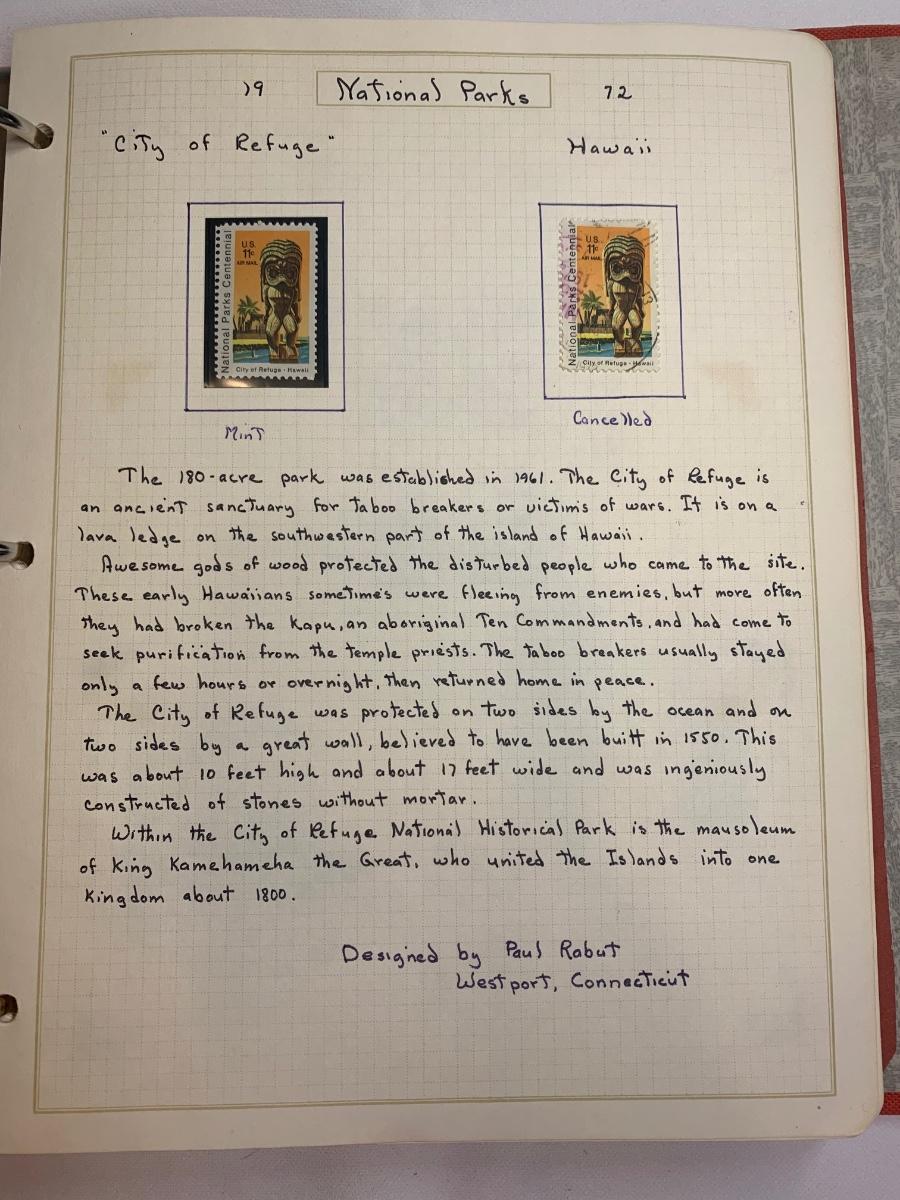 19 National Parks 72
"City of Refuge" Hawaii
National Parks Centennial
U.S.
11c
AIR MAIL
City of Refuge - Hawaii
National Parks Centennial
U.S.
11c
AIR MAIL
City of Refuge - Hawaii
Mint
Cancelled
The 180-acre park was established in 1961. The City of Refuge is
an ancient sanctuary for taboo breakers or victims of wars. It is on a
lava ledge on the southwestern part of the island of Hawaii.
Awesome gods of wood protected the disturbed people who came to the site.
These early Hawaiians sometime's were fleeing from enemies, but more often
they had broken the Kapu, an aboriginal Ten Commandments, and had come to
seek purification from the temple priests. The taboo breakers usually stayed
only a few hours or overnight, then returned home in peace.
The City of Refuge was protected on two sides by the ocean and on
two sides by a great wall, believed to have been built in 1550. This
was about 10 feet high and about 17 feet wide and was ingeniously
constructed of stones without mortar.
Within the City of Refuge National Historical Park is the mausoleum
of King Kamehameha the Great, who united the Islands into one
Kingdom about 1800.
Designed by Paul Rabut
Westport, Connecticut